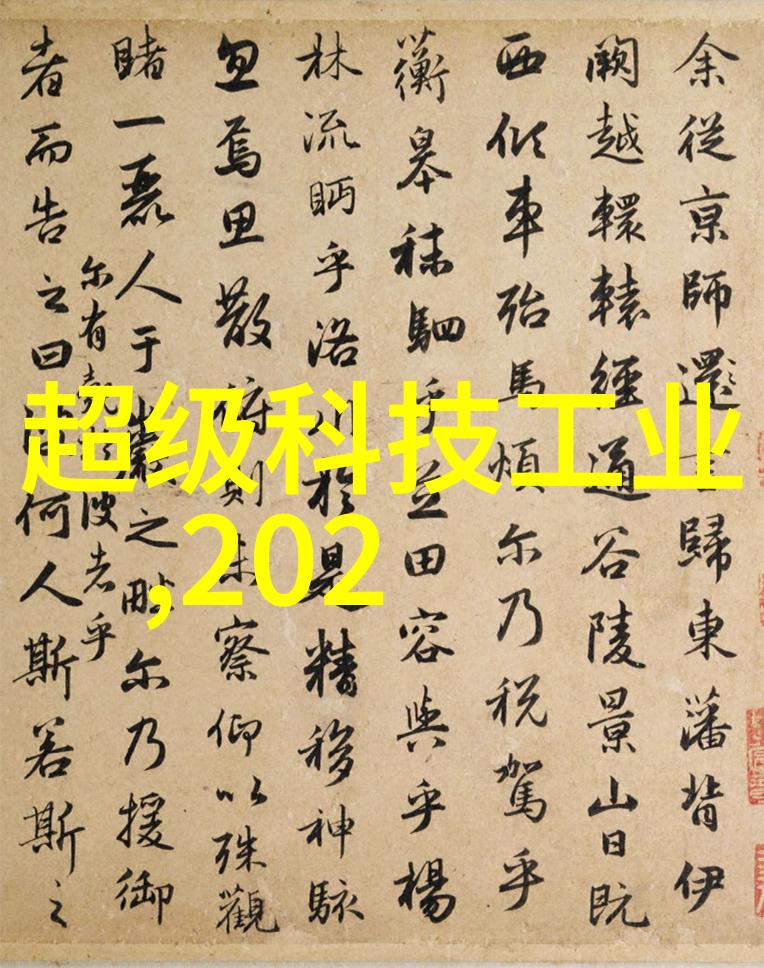 余從京師還言歸東藩背伊
闕越轘轅經通谷陵景山日既
西傾車殆馬煩尔乃税駕乎
蘅皋秣駟乎芝田容與乎楊
林流眄乎洛川於是精移神駭
忽焉思散俯則未察仰以殊觀
睹一麗人于巖之畔尔乃援御
尔有覿於彼者乎
者而告之曰彼何人斯若斯之
超级科技工业
,202